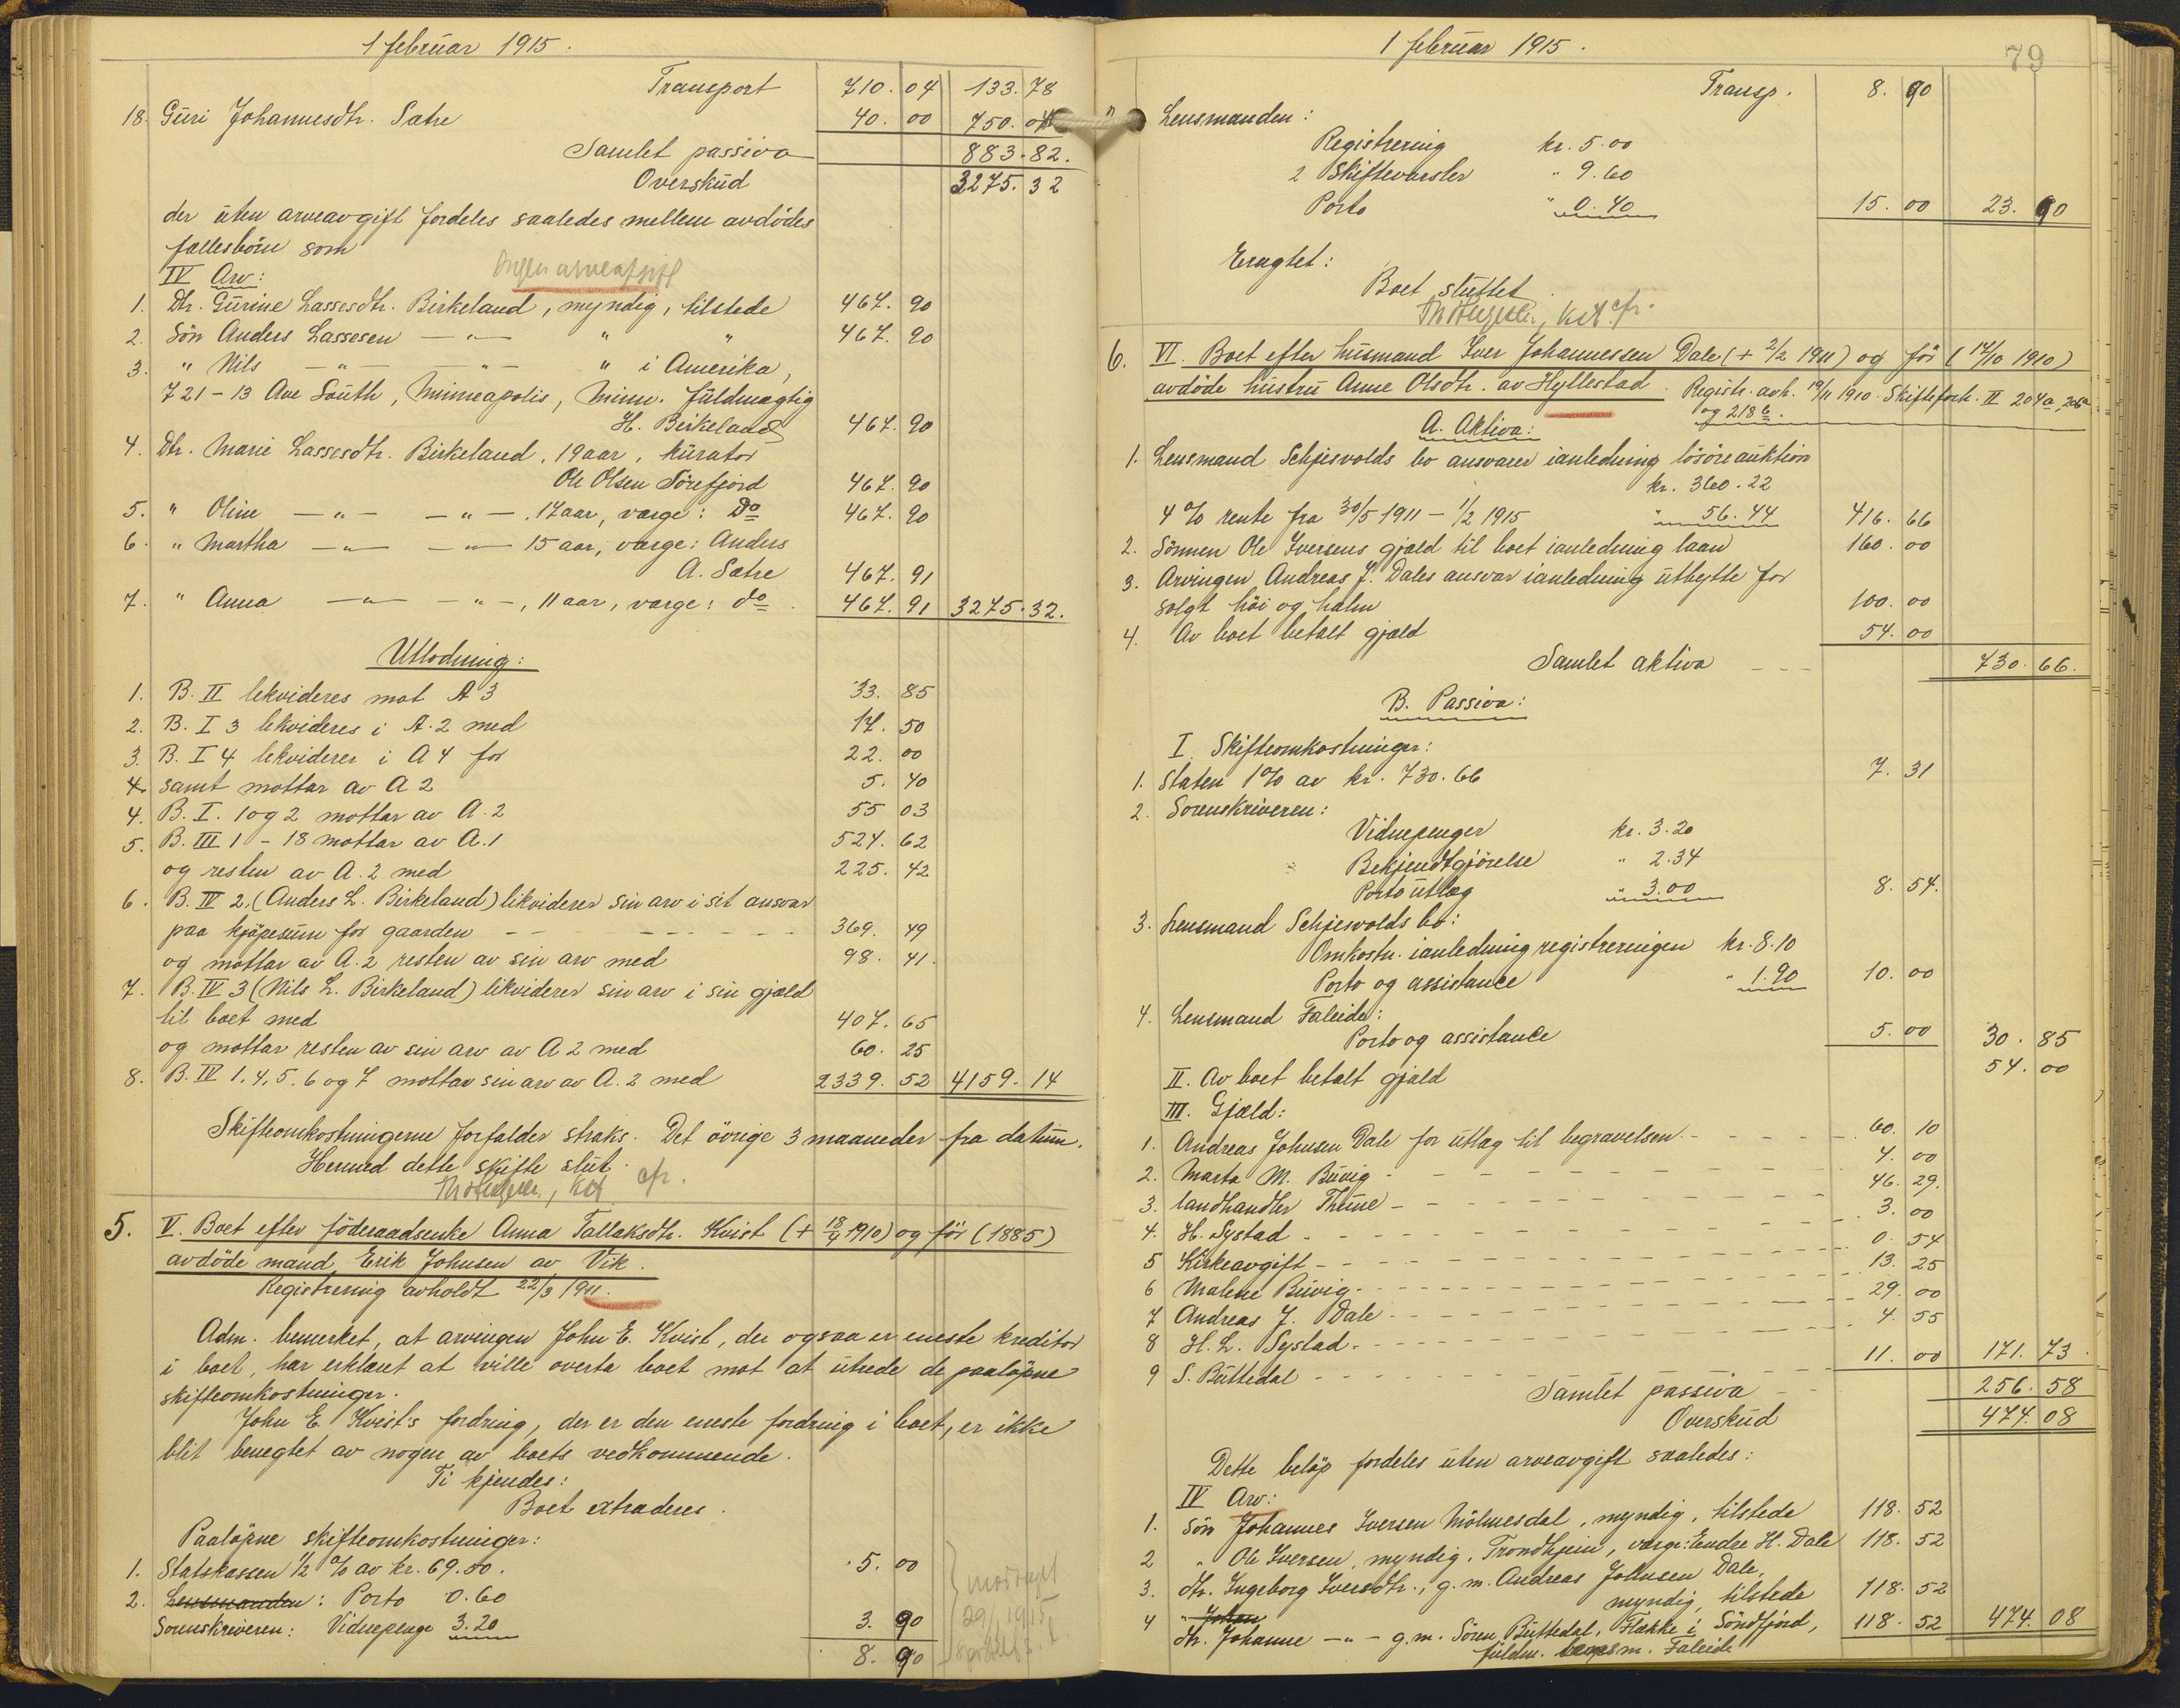 1 februar 1915.
Transport 710.04 133.78
18. Guri Johannesdtr. Sætre 40.00 750.04
Samlet passiva 883.82.
Overskud 3275.32
der uten arveavgift fordeles saaledes mellem avdödes
fællesbörn som
IV Arv: Ingen arveafgift
1. Dtr. Gurine Lassesdtr. Birkeland, myndig, tilstede 467.90
2. Sön Anders Lassesen —"— " " 467.90
3. " Nils —"— —"— " i Amerika,
721-13 Ave South, Minneapolis, Minn. fuldmægtig
H. Birkeland 467.90
4. Dtr. Marie Lassesdtr. Birkeland, 19 aar, kurator
Ole Olsen Sörefjord 467.90
5. " Oline —"— —"—, 17 aar, værge: Do 467.90
6. " Martha —"— —"— 15 aar, værge: Anders
A. Sætre 467.91
7. " Anna —"— —"—, 11 aar, værge: do. 467.91 3275.32.
Utlodning:
1. B. II lekvideres mot A 3 33.85
2. B. I 3 lekvideres i A. 2 med 17.50
3. B. I 4 lekviderer i A 4 for 22.00
4. samt mottar av A 2 5.40
4. B. I. 1 og 2 mottar av A. 2 55 03
5. B. III 1 - 18 mottar av A. 1 524.62
og resten av A. 2 med 225.42
6. B. IV 2, (Anders L. Birkeland) likviderer sin arv i sit ansvar
paa kjöpesum for gaarden - - - - - - - - 369.49
og mottar av A. 2 resten av sin arv med 98.41.
7. B. IV 3 (Nils L. Birkeland) likviderer sin arv i sin gjæld
til boet med 407.65
og mottar resten av sin arv av A 2 med 60.25
8. B. IV 1, 4, 5, 6 og 7 mottar sin arv av A. 2 med 2339.52 4159.14
Skifteomkostningerne forfalder straks. Det övrige 3 maaneder fra datum.
Hermed dette skifte slut.
cfr.
5. V. Boet efter föderaadsenke Anna Tallaksdtr. Kvist (+ 18/4 1910) og för (1885)
avdöde mand Erik Johnsen av Vik.
Registrering avholdt 22/3 1911.
Adm. bemerket, at arvingen John E. Kvist, der ogsaa er eneste kreditor
i boet, har erklæret at ville overta boet mot at utrede de paalöpne
skifteomkostninger.
John E. Kvist's fordring, der er den eneste fordring i boet, er ikke
blit benegtet av nogen av boets vedkommende.
Ti kjendes:
Boet extraderes.
Paalöpne skifteomkostninger:
1. Statskassen 1/2 % av kr. 69.50. 5.00
2. Lensmanden: Porto 0.60
Sorenskriveren: Vidnepenge 3.20 3.90
8.90
mottagt
29/1 1915
1 februar 1915.
79
Transp. 8.90
Lensmanden:
Registrering kr. 5.00
2 Skiftevarsler " 9.60
Porto " 0.40 15.00 23.90
Eragtet:
Boet sluttet.
cfr.
6. VI. Boet efter husmand Iver Johannessen Dale (+ 2/2 1911) og för (14/10 1910)
avdöde hustru Anne Olsdtr. av Hyllestad. Registr. avh. 19/11 1910. Skiftefork. II 204a, 206a
og 218b.
A. Aktiva:
1. Lensmand Schjesvolds bo ansvarer ianledning lösöreauktion
kr. 360.22
4 % rente fra 30/5 1911 - 1/2 1915 " 56.44 416.66
2. Sönnen Ole Iversens gjæld til boet ianledning laan 160.00
3. Arvingen Andreas J. Dales ansvar ianledning utbytte for
solgt höi og halm 100.00
4. Av boet betalt gjæld 54.00
Samlet aktiva - - - 730.66.
B. Passiva:
I. Skifteomkostninger:
1. Staten 1% av kr. 730.66 7.31
2. Sorenskriveren:
Vidnepenger kr. 3.20
Bekjendtgjörelse " 2.34
Porto utlæg " 3.00 8.54.
3. Lensmand Schjesvolds bo:
Omkostn. ianledning registreringen kr. 8.10
Porto og assistance " 1.90 10.00
4. Lensmand Faleide:
Porto og assistance 5.00 30.85
II. Av boet betalt gjæld 54.00
III. Gjæld:
1. Andreas Johnsen Dale for utlæg til begravelsen - - - - 60.10
2. Marta M. Buvig - - - - - - - - 4.00
3. landhandler Thune - - - - - - - - 46.29.
4. H. Systad - - - - - - - - 3.00
5 Kirkeavgift - - - - - - - - 0.54
6 Malene Buvig - - - - - - - - 13.25
7 Andreas J. Dale - - - - - - - - 29.00
8 H. L. Systad - - - - - - - - 4.55
9 S. Buttedal - - - - - - - - 11.00 171.73.
Samlet passiva - - 256.58
Overskud 474.08
Dette belöp fordeles uten arveavgift saaledes:
IV Arv:
1. Sön Johannes Iversen Mölmesdal, myndig, tilstede 118.52
2 " Ole Iversen, myndig, Trondhjem, værge: Endre H. Dale 118.52
3. dtr. Ingeborg Iversdtr., g. m. Andreas Johnsen Dale,
myndig, tilstede 118.52
4 " Johan
dtr. Johanne —"— g. m. Sören Buttedal, Flekke i Söndfjord, 118.52 474.08
fuldm. lensm. Faleide